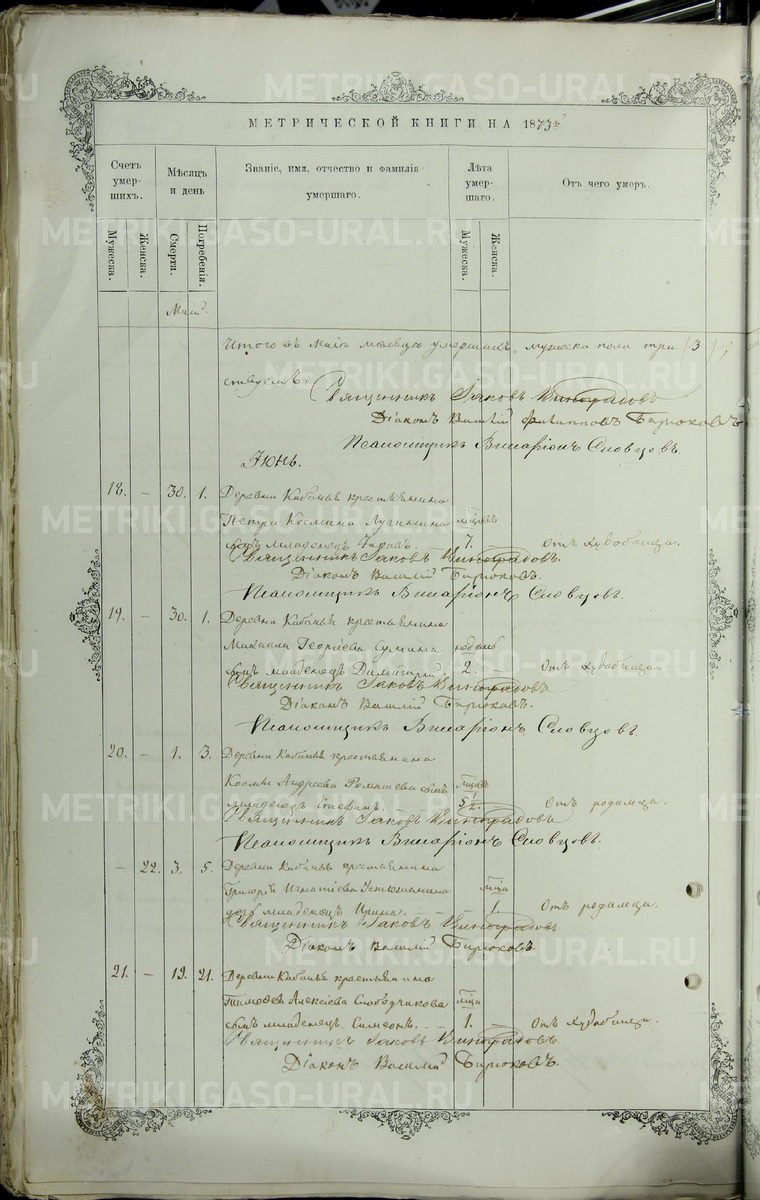 МЕТРИЧЕСКОЙ КНИГИ НА 1873 г.
Счетъ умер-шихъ.
Мѣсяцъ и день
Званіе, имя, отчество и фамилія умершаго.
Лѣта умер-шаго.
Отъ чего умеръ.
Мужеска.
Женска.
Смерти.
Погребенія.
Мужеска.
Женска.
Май
Итого въ Маіѣ мѣсяцѣ умершихъ мужеска пола три (3)
Священникъ Іаковъ Виноградовъ
Діаконъ Василій Филипповъ Бирюковъ
Псаломщикъ Виссаріонъ Словцовъ
Іюнь.
18. – 30. 1. Деревни Кабаньѣ крестьянина
Петра Косьмина Лугинина мѣсяцъ
сынъ младенецъ 7. Отъ худобища.
Священникъ Іаковъ Виноградовъ.
Діаконъ Василій Бирюковъ.
Псаломщикъ Виссаріонъ Словцовъ.
19. – 30. 1. Деревни Кабаньѣ крестьянина
Михаила Георгіева недѣль
сынъ младенецъ Димитрій 2. – Отъ худобища
Священникъ Іаковъ Виноградовъ
Діаконъ Василій Бирюковъ.
Псаломщикъ Виссаріонъ Словцовъ.
20. – 1. 3. Деревни Кабаньѣ крестьянина
Космы Андреева Ромашева сынъ
младенецъ Стефанъ. Отъ родимца.
Священникъ Іаковъ Виноградовъ
Псаломщикъ Виссаріонъ Словцовъ.
– 22. 3. 5. Деревни Кабаньѣ крестьянина
Григорія Игнатіева Устюжанина
дочь младенецъ Ирина. – 1. Отъ родимца.
Священникъ Іаковъ Виноградовъ
Діаконъ Василій Бирюковъ.
21. – 19. 21. Деревни Кабаньѣ крестьянина
Тимофея Алексѣева Слободчикова
сынъ младенецъ Симеонъ. 1. – Отъ худобища.
Священникъ Іаковъ Виноградовъ.
Діаконъ Василій Бирюковъ.
METRIKI.GASO-URAL.RU